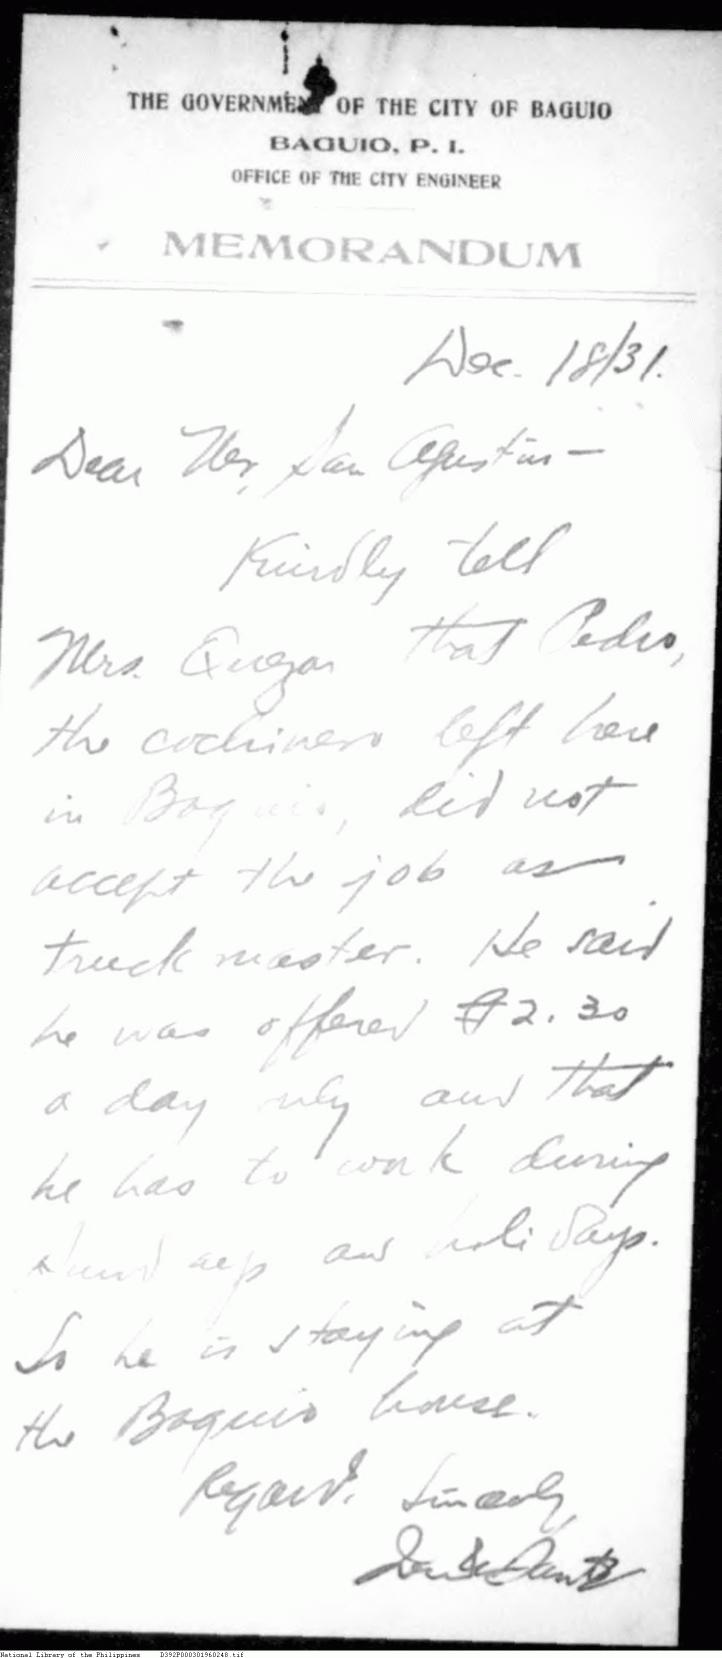 THE GOVERNMENT OF THE CITY OF BAGUIO
BAGUIO, P. I.
OFFICE OF THE CITY ENGINEER
MEMORANDUM
Dec. 18/31.
Dear Mr. San Agustin —
Kindly tell
Mrs. Quezon that Pedro,
the cochinero left here
in Baguio, did not
accept the job as
truck master. He said
he was offered ₱2.30
a day only and that
he has to work during
Sundays and holidays.
So he is staying at
the Baguio house.
Regards. Sincerely,
National Library of the Philippines D392P000301960248.tif